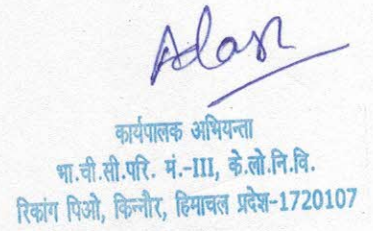 कार्यपालक अभियन्ता
भा.ची.सी.परि. मं.-III, के.लो.नि.वि.
रिकांग पिओ, किन्नौर, हिमाचल प्रदेश-1720107